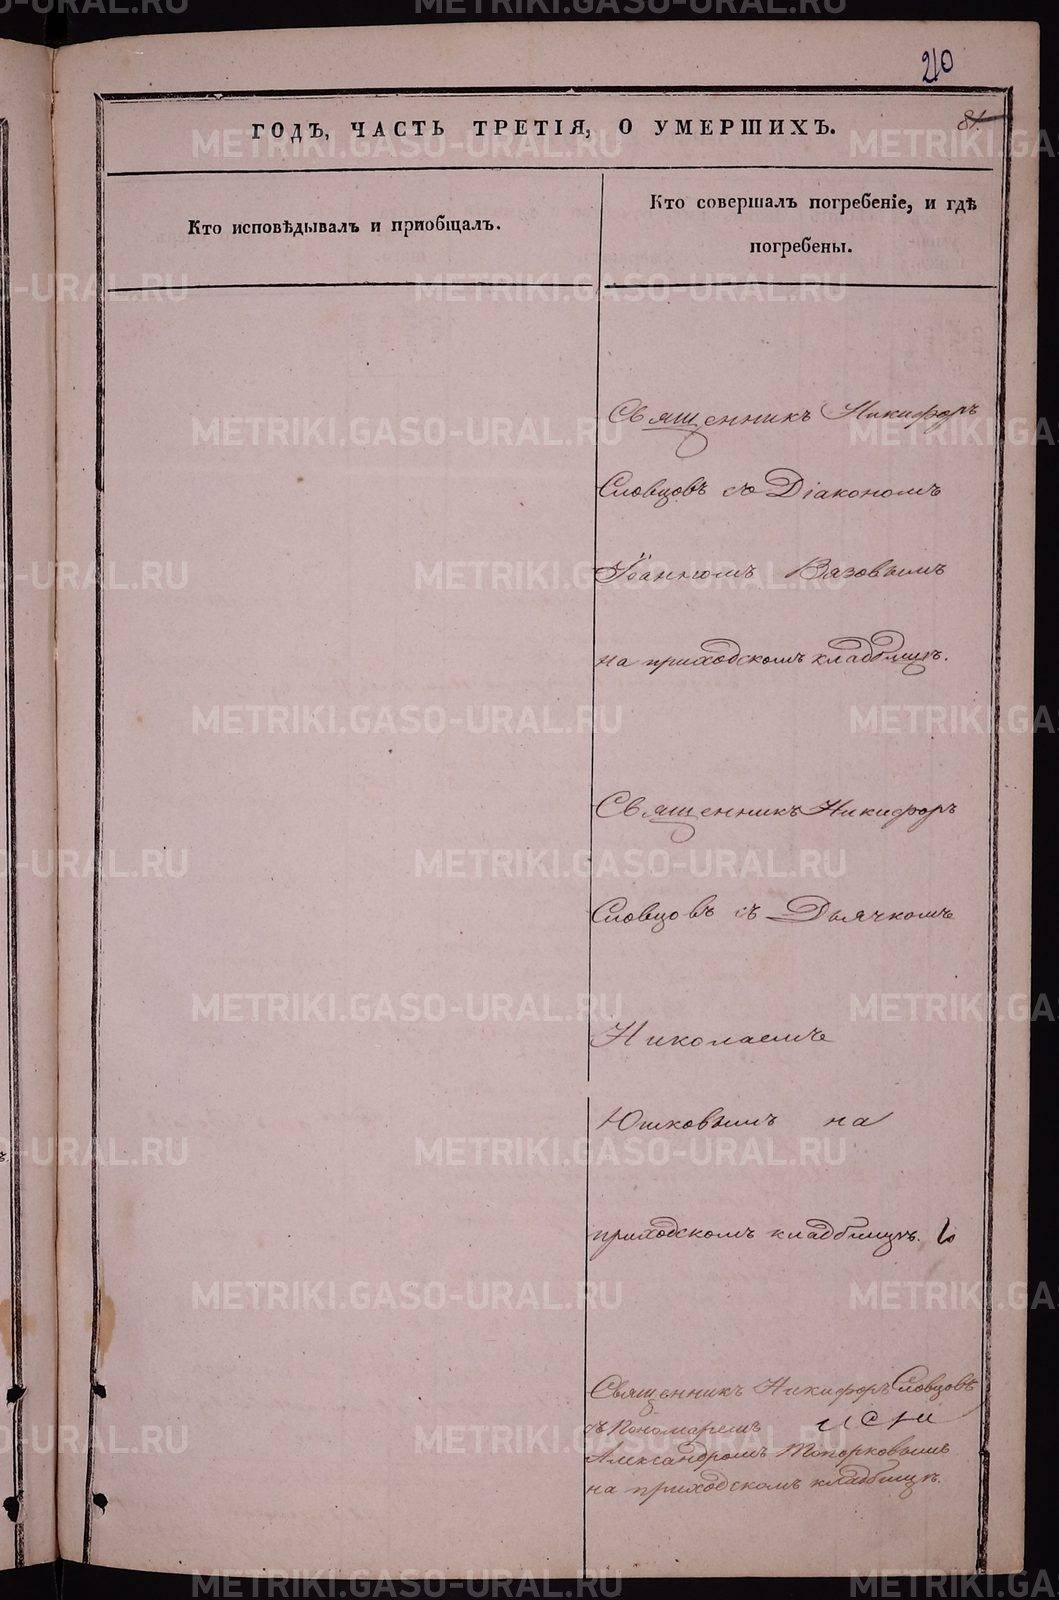 210
81.
ГОДЪ, ЧАСТЬ ТРЕТІЯ, О УМЕРШИХЪ.
Кто исповѣдывалъ и пріобщалъ.
Кто совершалъ погребеніе, и гдѣ
погребены.
Священникъ Никифоръ
Словцовъ съ Діакономъ
Іоанномъ Вязовымъ
на приходскомъ кладбищѣ.
Священникъ Никифоръ
Словцовъ съ Дьячкомъ
Николаемъ
Юшковымъ на
приходскомъ кладбищѣ.
Священникъ Никифоръ Словцовъ
съ Пономаремъ
Александромъ Топорковымъ
на приходскомъ кладбищѣ.
METRIKI.GASO-URAL.RU